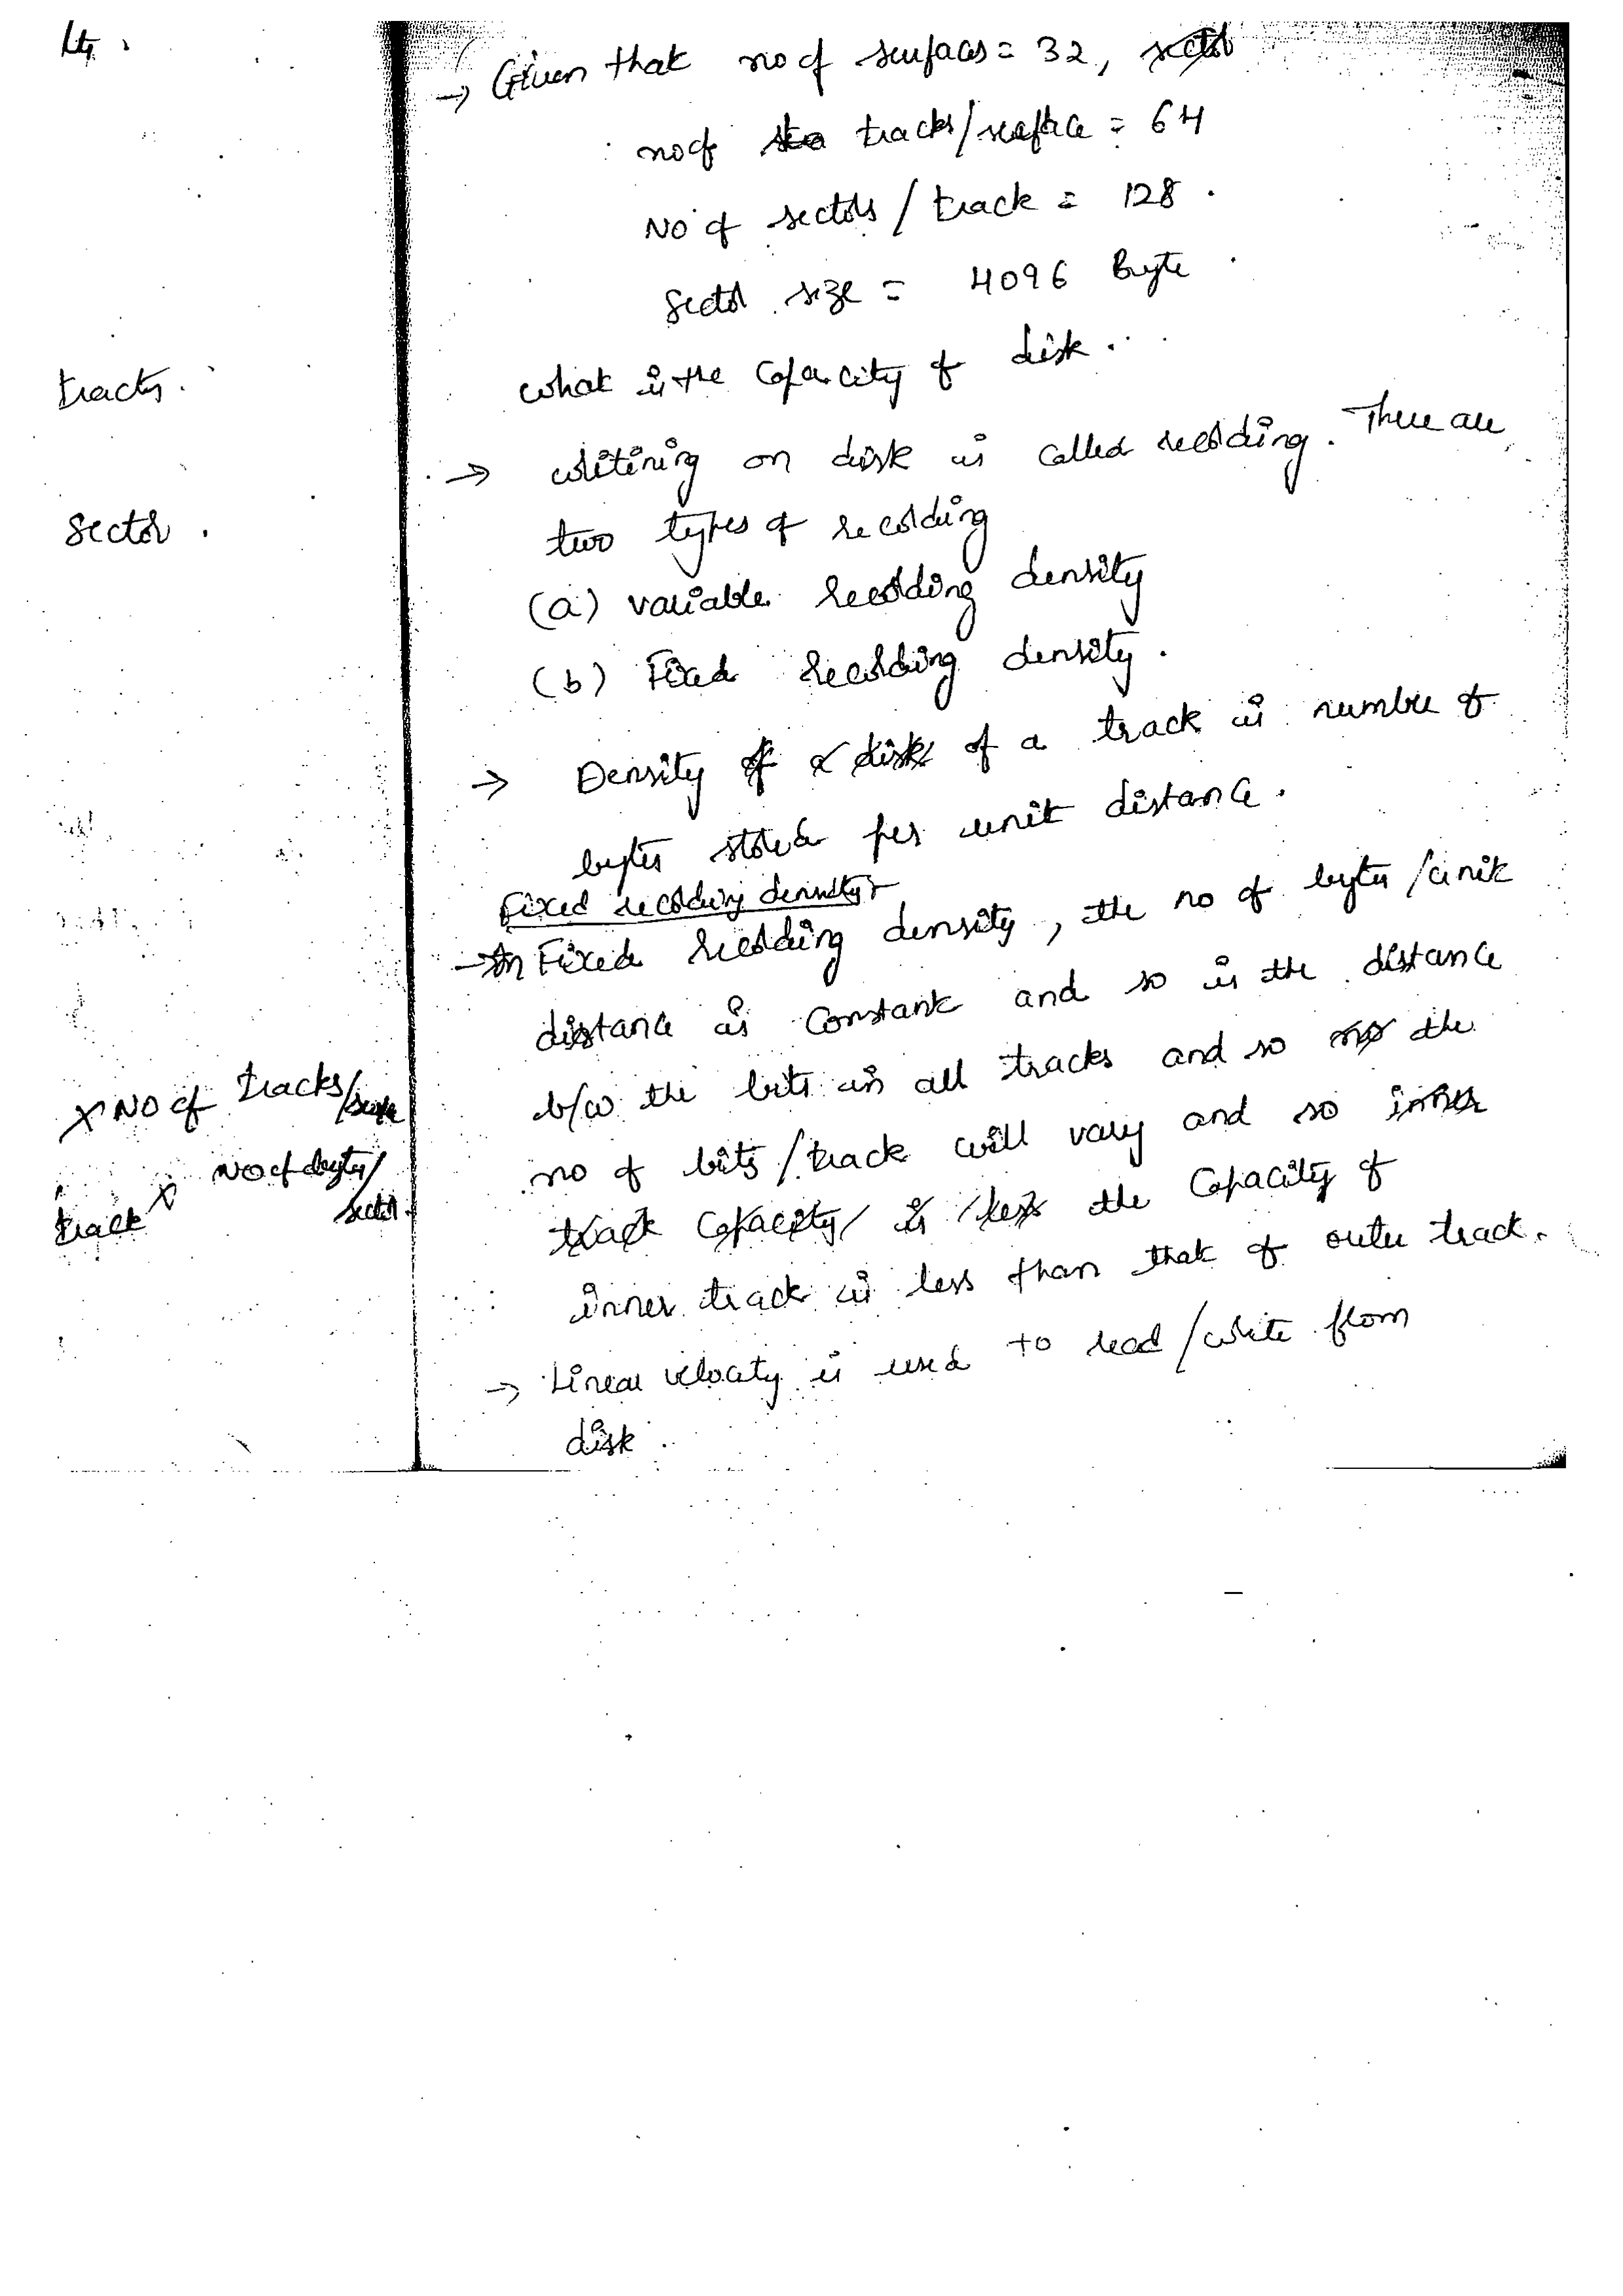 tracks.
sector.
x No of tracks/
No of bytes/
track x
sector.
→ Given that no of surfaces = 32, sector
no of tracks/surface = 64
No of sectors / track = 128.
Sector size = 4096 Byte.
what is the Capacity of disk.
→ writining on disk is called recording. There are
two types of recording
(a) variable recording density
(b) Fixed recording density.
→ Density of a disk of a track is number of
bytes stored per unit distance.
Fixed recording density
→ In Fixed recording density, the no of bytes /unit
distance is constant and so is the distance
b/w the bits in all tracks and so no the
no of bits /track will vary and so inner
track Capacity is less the Capacity of
inner track is less than that of outer track.
→ Linear velocity is used to read /write from
disk.